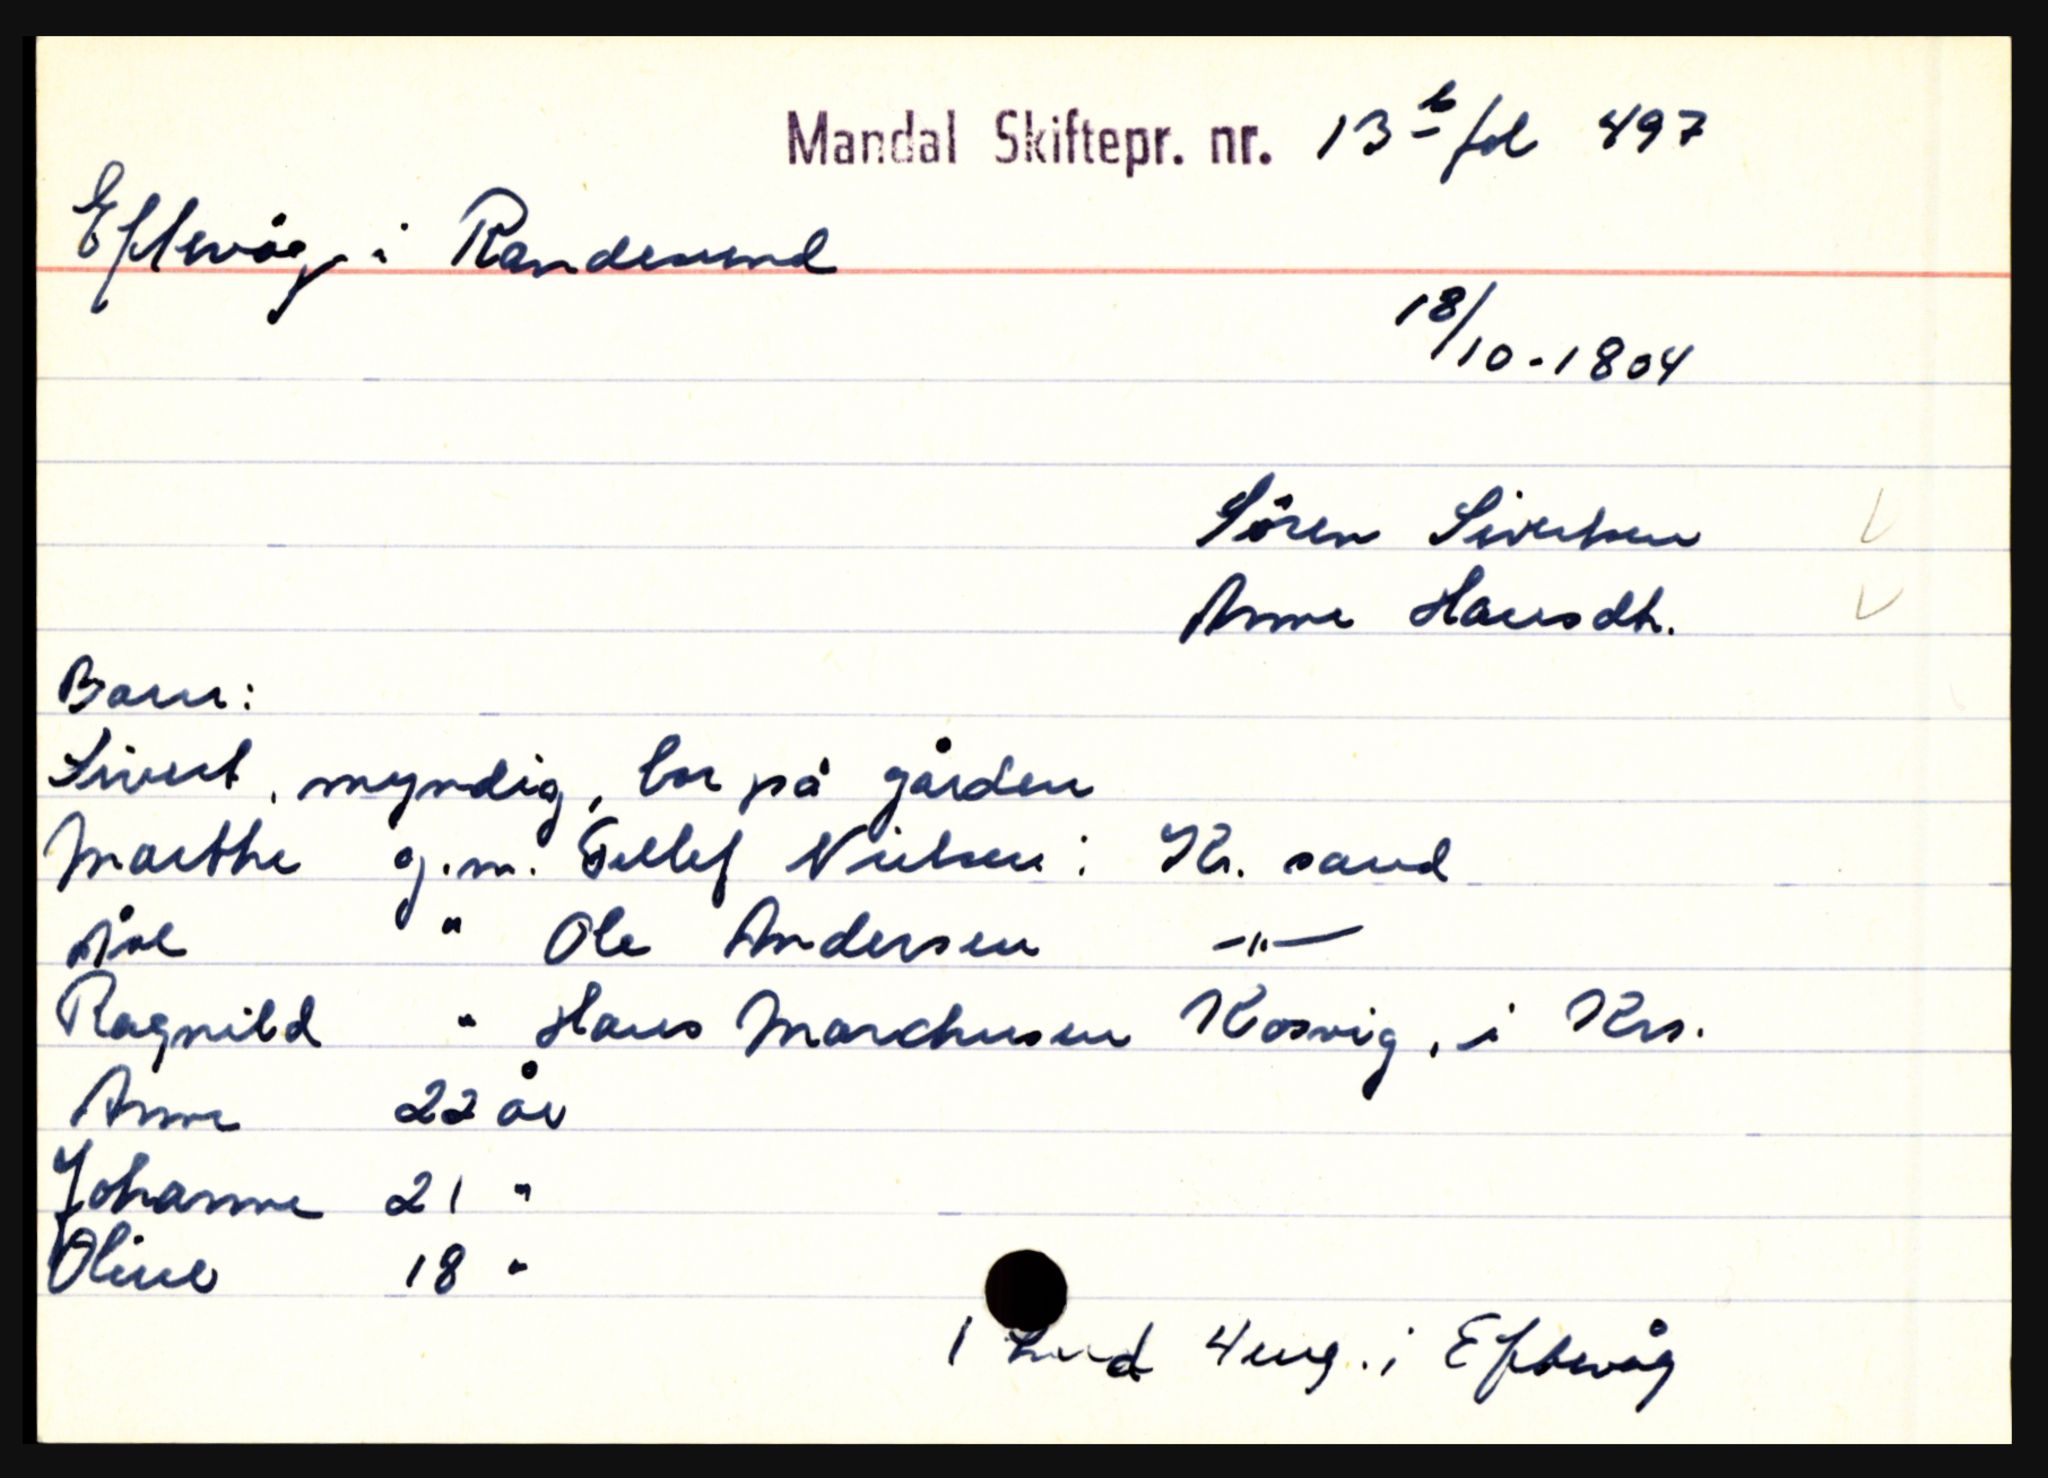 Mandal Skiftepr. nr. 13 b fol 497
Eftevåg i Randesund
18/10-1804
Sören Sivertsen
Anne Hansdtr.
Barn:
Sivert, myndig, bor på gården
Marthe g.m. Tellef Nielsen i Kr. sand
Åse " Ole Andersen -"-
Ragnild " Hans Marchusen Kosvig, i Krs.
Anne 22 år
Johanne 21 "
Oline 18 "
1 hud 4 eng. i Eftevåg